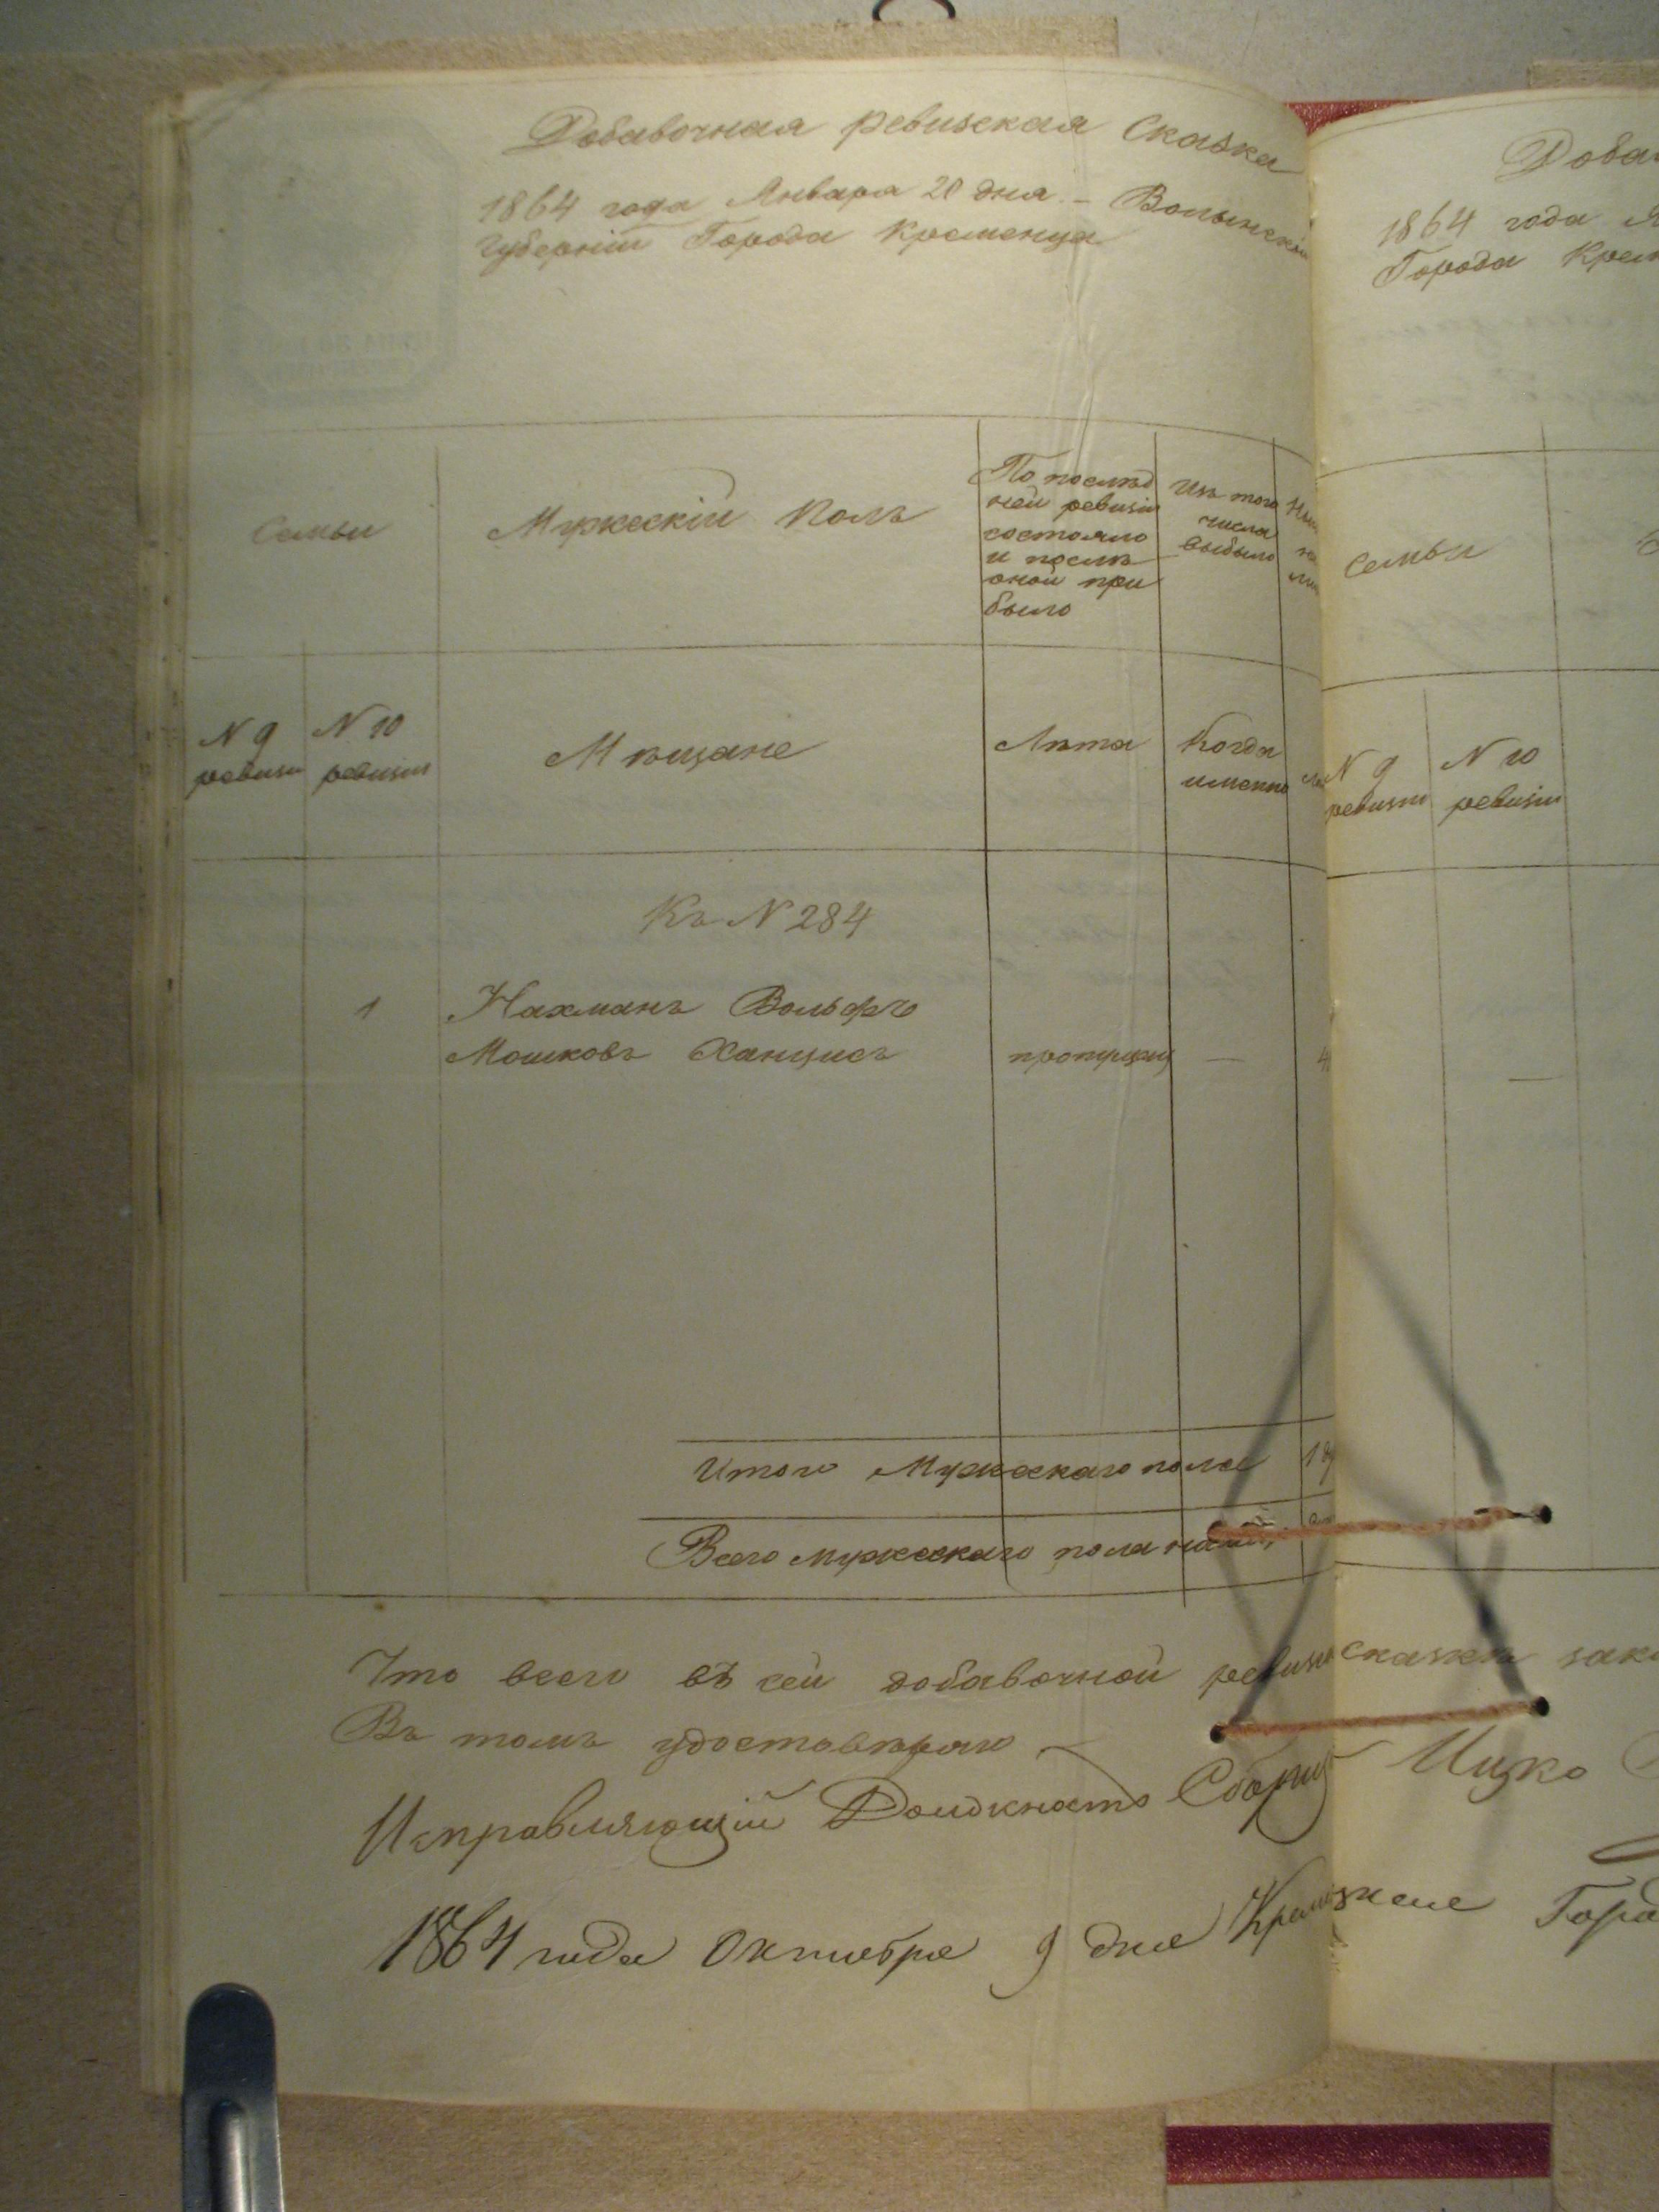 Добавочная ревизская Сказка
1864 года Января 20 дня – Волынской
Губерніи Города Кременца
Семьи
Мужескій полъ
По послѣд
ней ревизіи
состояло
и послѣ
оной при
было
Изъ того
числа
выбыло
N 9
ревизіи
N 10
ревизіи
Мѣщане
Лѣта
Когда
именно
Къ N 284
1
Нахманъ Вольфъ
Мошковъ Ханцисъ
пропущен
—
4
Итого Мужескаго пола
1
Всего мужескаго пола
Что всего въ сей добавочной ревизс
Въ томъ удостовѣряю
Исправляющій Должность
1864 года Октября 9 дня
Доба
1864 года Я
Города Крем
Семьи
N 9
ревизіи
N 10
ревизіи
—
сказкѣ
Ицко
Горо